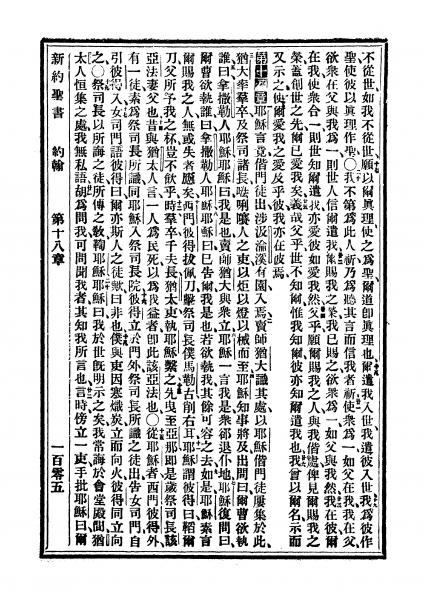 不從世如我不從世願以爾眞理使之爲聖爾道卽眞理也爾遣我入世我遣彼入世我爲彼作
聖使彼以眞理作聖〇我不第爲此人祈乃爲聽其言而信我者祈使衆爲一如父在我我在父
欲衆在父與我爲一則世人信爾遣我爾賜我之榮我已賜之欲衆爲一如父與我然我在彼爾
在我使衆合一則世知爾遣我亦愛彼如愛我然父乎願爾賜我之人與我偕處俾見爾賜我之
榮蓋創世之先爾已愛我矣義哉父乎世不知爾惟我知爾彼亦知爾遣我也我曾以爾名示而
又示之使爾愛我之愛及乎彼我亦在彼焉
第十八章 耶穌言竟偕門徒出涉汲淪溪有園入焉賣師猶大識其處以耶穌偕門徒屢集於此
猶大率羣卒及祭司諸長唎人之吏以炬以燈以械而至耶穌知事將及出問曰爾曹欲執
誰曰拿撒勒人耶穌耶穌曰我是也賣師猶大與衆立耶穌一言我是衆卻退仆地耶穌復問曰
爾曹欲執誰曰拿撒勒人耶穌耶穌曰已告爾我是也若欲執我其餘可容之去如是耶穌素言
爾賜我之人無或失者應矣西門彼得拔佩刀擊祭司長僕馬勒古削右耳耶穌謂彼得曰韜爾
刀父所予我之杯豈不飲乎時羣卒千夫長猶太吏執耶穌繫之先曳至亞那卽是歲祭司長該
亞法妻父也昔與猶太人言一人爲民死以爲我益者卽此該亞法也〇從耶穌者西門彼得外
有一徒素爲祭司長所識同耶穌入祭司長院彼得立於門外祭司長所識之徒出告女司門自
引彼得入女司門語彼得曰爾亦斯人之徒歟曰非也僕與吏因寒熾炭立而向火彼得同立向
之〇祭司長以所誨之徒所傳之敎鞠耶穌耶穌曰我於世旣明示之矣我常誨於會堂殿間猶
太人恒集之處我無私語胡爲問我可問聞我者其知我所言也言時傍立一吏手批耶穌曰爾
新約聖書 約翰 第十八章 一百零五